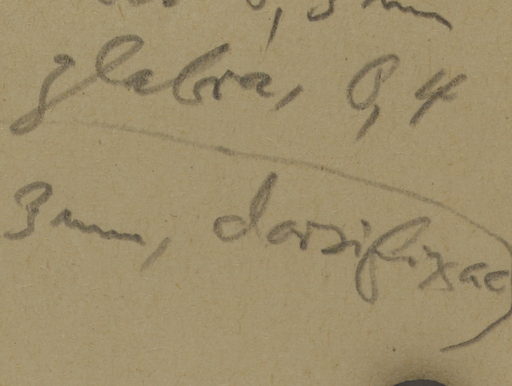 0,3 mm
glabra, 0,4
3 mm, dorsifixae